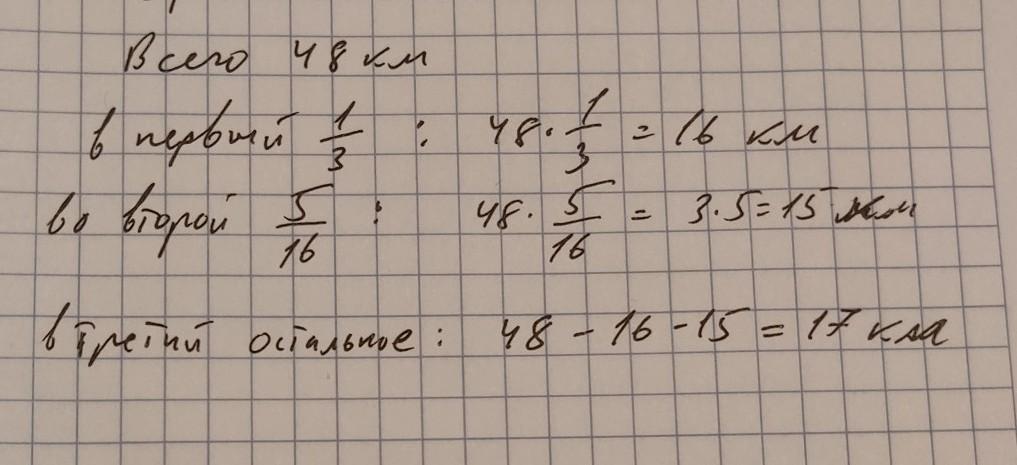 Всего 48 км
в первый 1/3 : 48 · 1/3 = 16 км
во второй 5/16 : 48 · 5/16 = 3·5=15 км
в третий остальное : 48 - 16 - 15 = 17 км